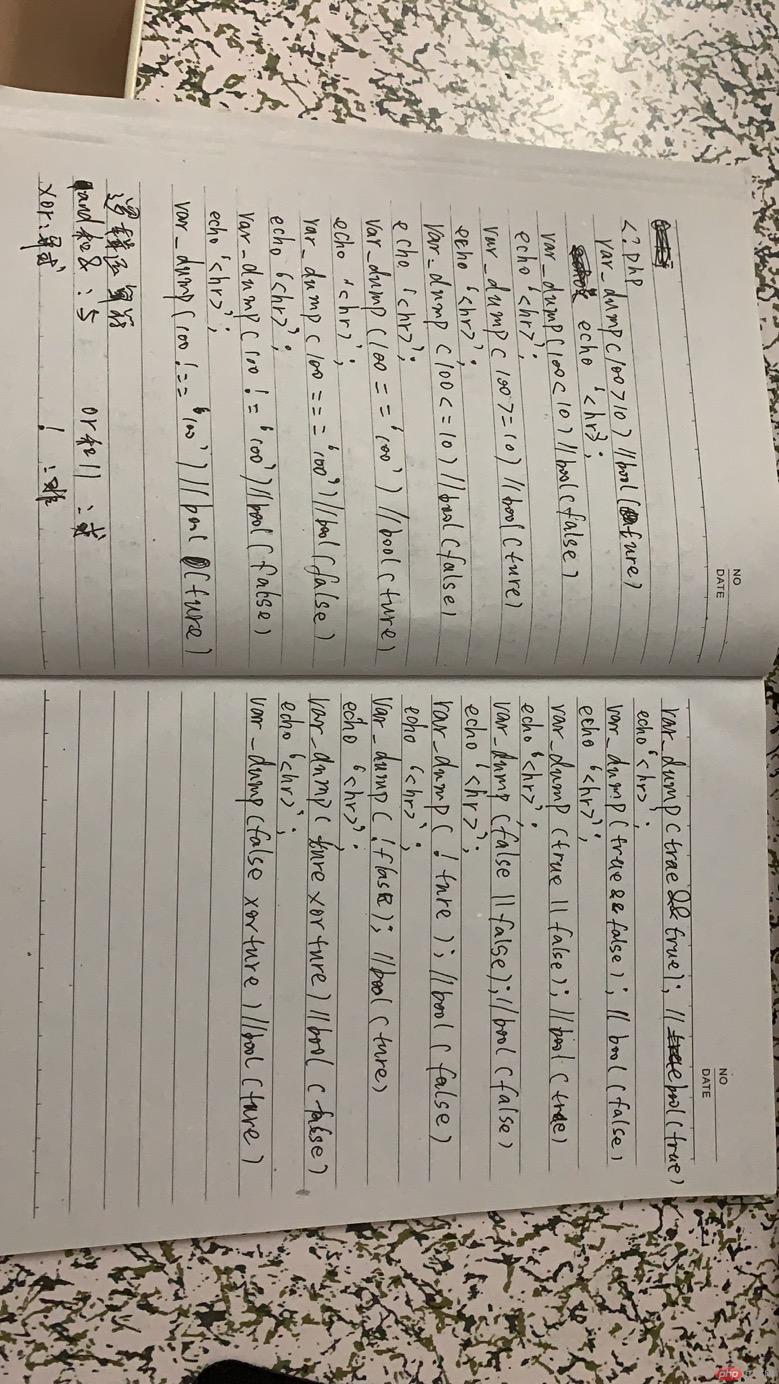 NO
DATE
<?php
var_dump(100>10) //bool(ture)
echo '<hr>';
var_dump(100<10) //bool(false)
echo '<hr>';
var_dump(100>=10) //bool(ture)
echo '<hr>';
var_dump(100<=10) //bool(false)
echo '<hr>';
var_dump(100=='100') //bool(ture)
echo '<hr>';
var_dump(100==='100') //bool(false)
echo '<hr>';
var_dump(100!='100') //bool(false)
echo '<hr>';
var_dump(100!=='100') //bool(ture)
逻辑运算符
and和&:与 or和||:或
xor:异或 !:非
NO
DATE
var_dump(trae&&true); //bol(true)
echo '<hr>';
var_dump(true&&false); //bool(false)
echo '<hr>';
var_dump(true||false); //bool(true)
echo '<hr>';
var_dump(false||false); //bool(false)
echo '<hr>';
var_dump(!ture); //bool(false)
echo '<hr>';
var_dump(!flase); //bool(ture)
echo '<hr>';
var_dump(ture xor ture) //bool(false)
echo '<hr>';
var_dump(false xor ture) //bool(ture)
php